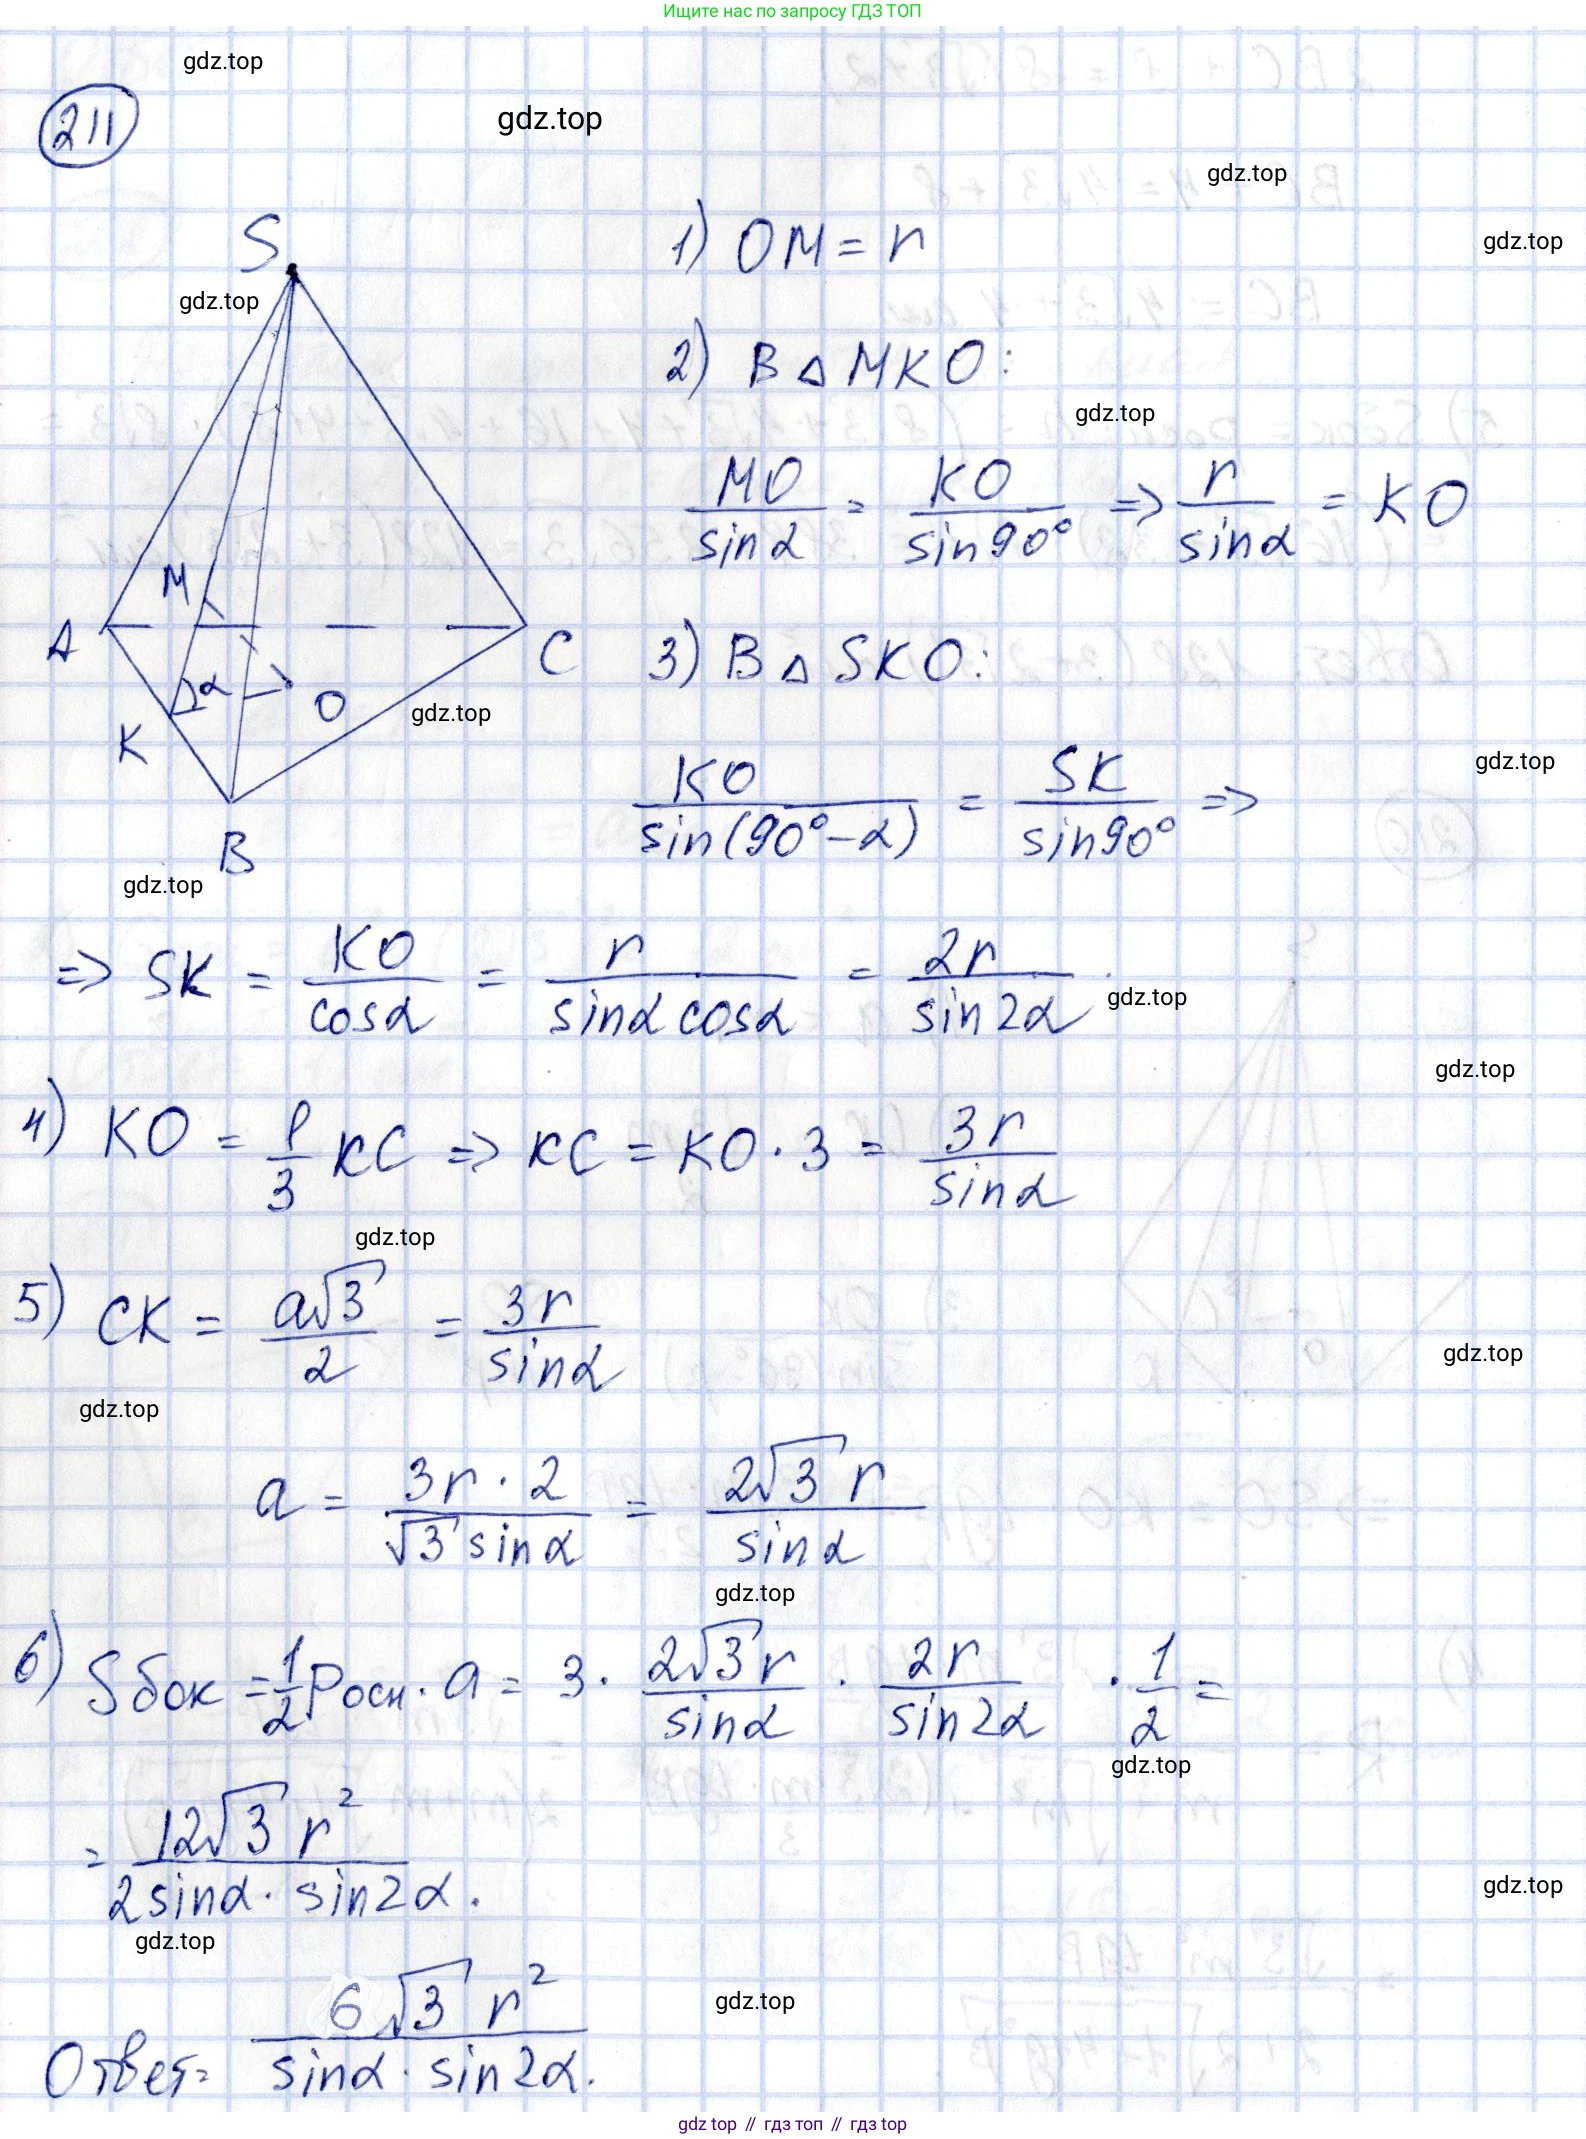 Ищите нас по запросу ГДЗ ТОП
gdz.top
211
gdz.top
gdz.top
gdz.top
S
1) OM = r
gdz.top
2) В △ MKO:
gdz.top
MO/sinα = KO/sin90° => r/sinα = KO
M
A
C
3) В △ SKO:
α
O
gdz.top
K
KO/sin(90°-α) = SK/sin90° =>
gdz.top
B
gdz.top
=> SK = KO/cosα = r/(sinα cosα) = 2r/sin2α.
gdz.top
gdz.top
4) KO = 1/3 KC => KC = KO · 3 = 3r/sinα
gdz.top
5) CK = a√3/2 = 3r/sinα
gdz.top
gdz.top
a = 3r · 2/(√3 sinα) = 2√3 r/sinα
gdz.top
6) Sбок = 1/2 Pосн · a = 3 · 2√3 r/sinα · 2r/sin2α · 1/2 =
gdz.top
= 12√3 r²/(2sinα · sin2α).
gdz.top
gdz.top
gdz.top
Ответ: 6√3 r²/(sinα · sin2α).
gdz top // гдз топ // гдз top